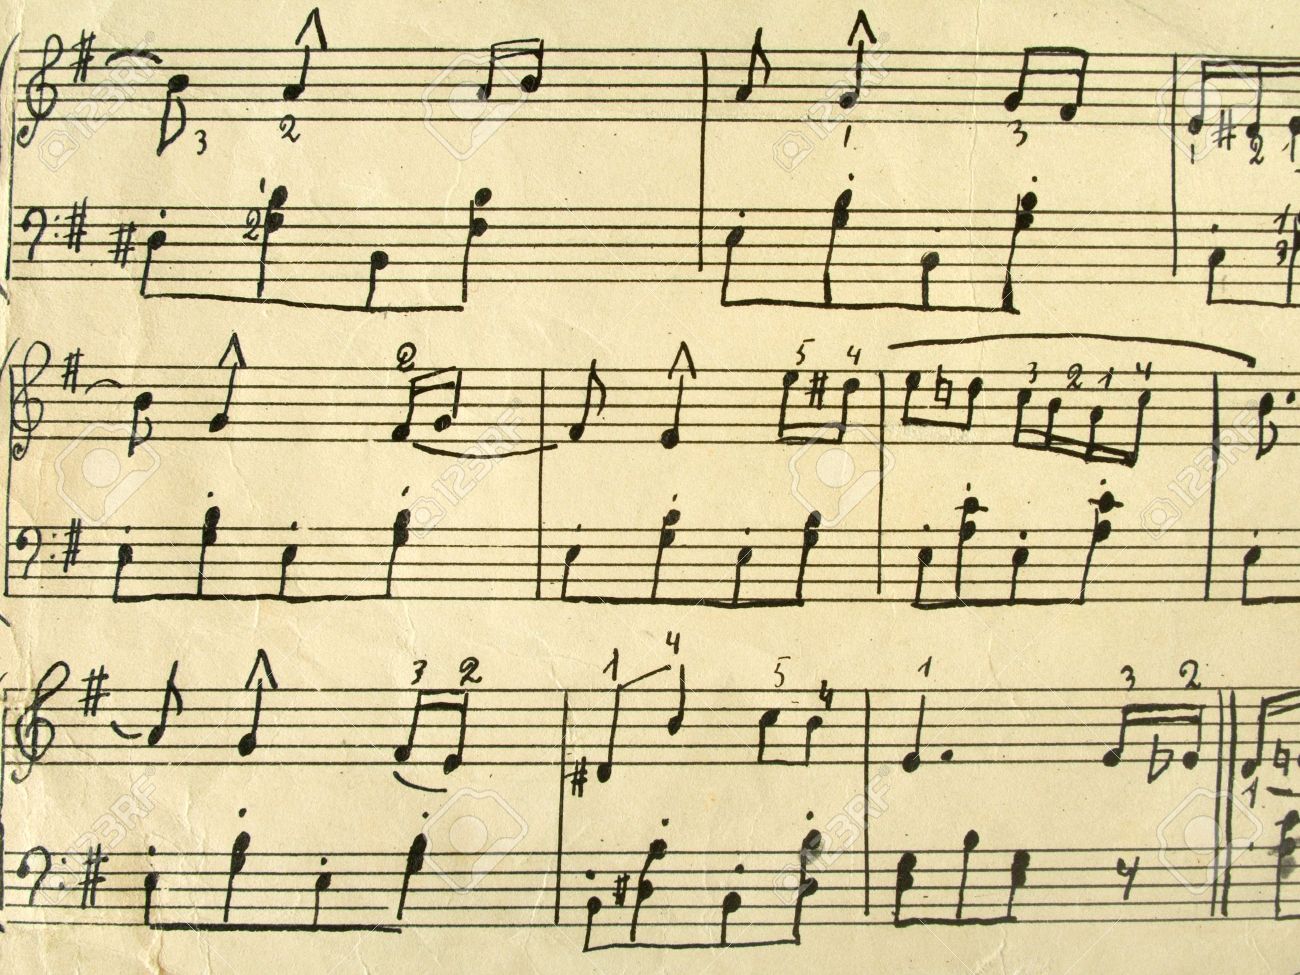 3 2 1 3 1 2 1
2 1 3
2 5 4 3 2 1 4
3 2 1 4 5 4 1 3 2
1
123RF